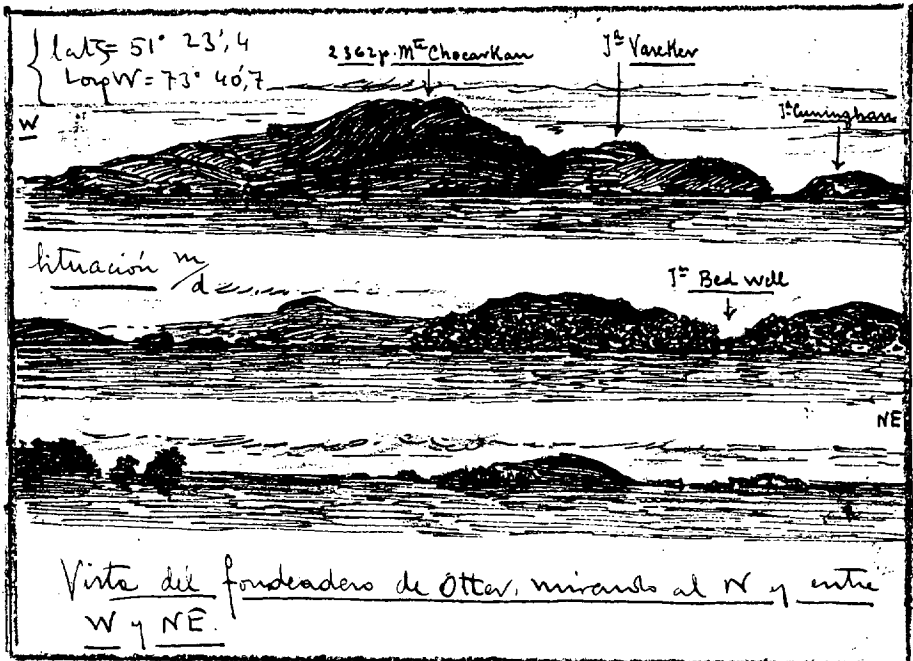 lat S = 51° 23',4
Long W = 73° 40',7
2362p. Mte Chocarkan
Ia Vareller
Ia Cuningham
W
Situación m/d
Ia Bed Well
NE
Vista del fondeadero de Otter, mirando al N y entre
W y NE.